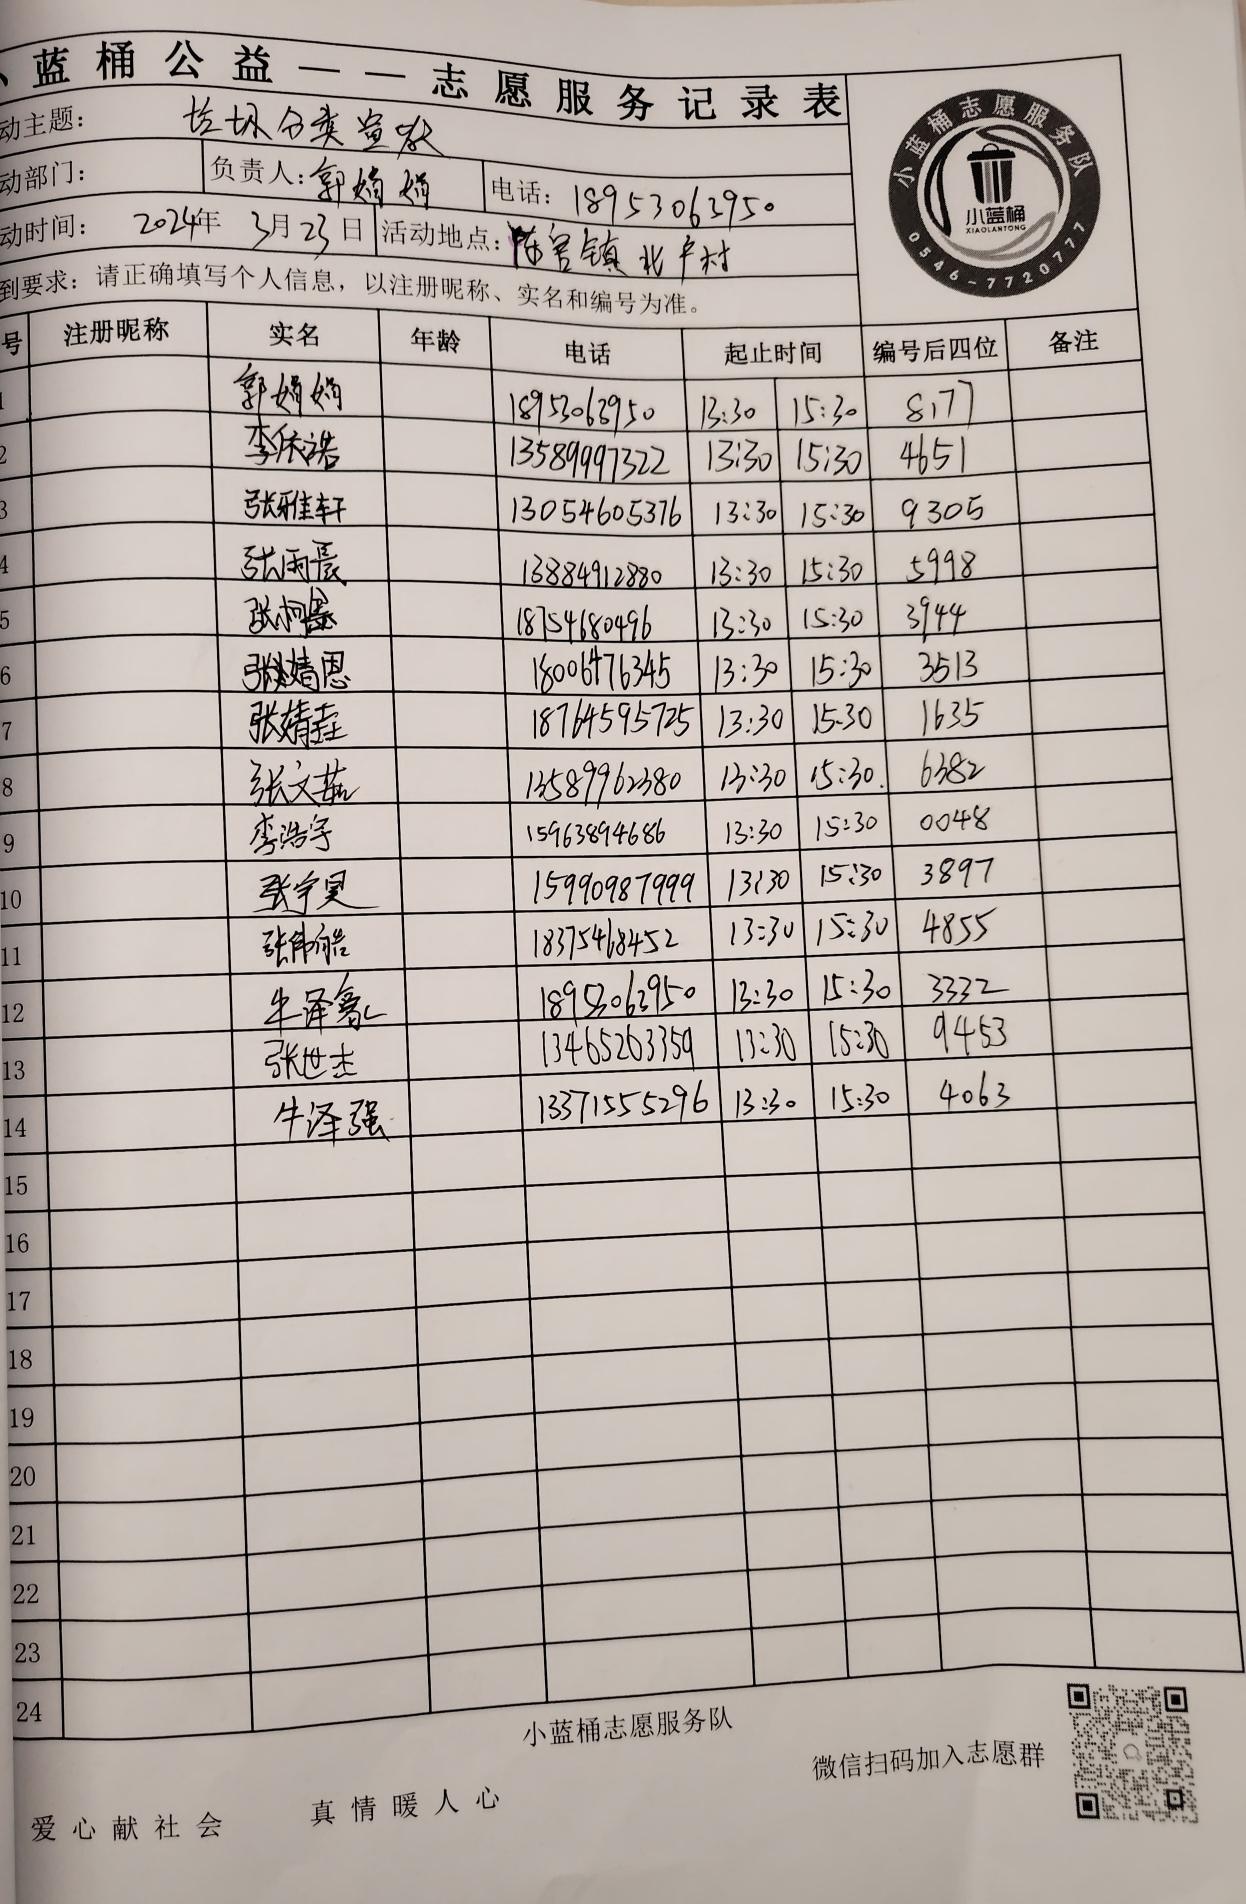 小蓝桶公益——志愿服务记录表
动主题： 垃圾分类宣教
动部门： 负责人：郭娟娟 电话：18953063950
动时间： 2024年 3月23日 活动地点：陈官镇北卢村
到要求：请正确填写个人信息，以注册昵称、实名和编号为准。
小蓝桶志愿服务队
小蓝桶
XIAOLANTONG
0546-7720777
号 注册昵称 实名 年龄 电话 起止时间 编号后四位 备注
1 郭娟娟 18953063950 13:30 15:30 8177
2 李依诺 13589997322 13:30 15:30 4651
3 张雅轩 13054605376 13:30 15:30 9305
4 张雨晨 13884912880 13:30 15:30 5998
5 张 18754680496 13:30 15:30 3944
6 张婧恩 18006476345 13:30 15:30 3513
7 张婧 18764595725 13:30 15:30 1635
8 张文茹 13589962380 13:30 15:30 6382
9 李浩宇 15963894686 13:30 15:30 0048
10 张宇昊 15990987999 13:30 15:30 3897
11 张 18375468452 13:30 15:30 4855
12 牛泽 18953063950 13:30 15:30 3332
13 张世杰 13465203359 13:30 15:30 9453
14 牛泽强 13371555296 13:30 15:30 4063
15
16
17
18
19
20
21
22
23
24
小蓝桶志愿服务队
微信扫码加入志愿群
爱心献社会 真情暖人心